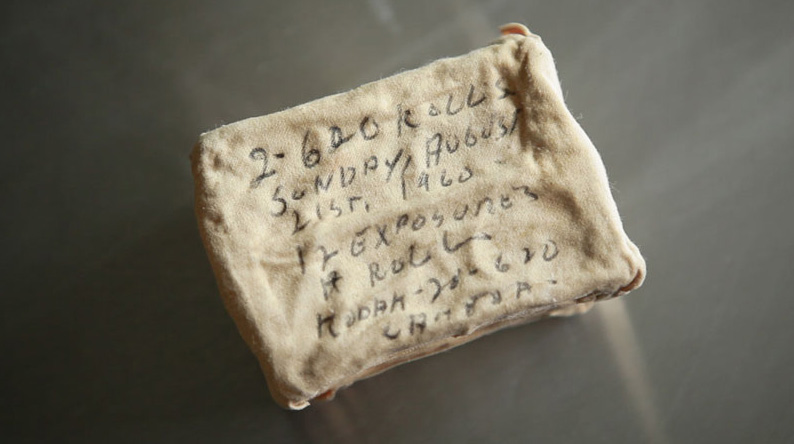 2-620 ROLLS
SUNDAY, AUGUST
21ST, 1960-
12 EXPOSURES
A ROLL
KODAK-20-620
CAMERA-